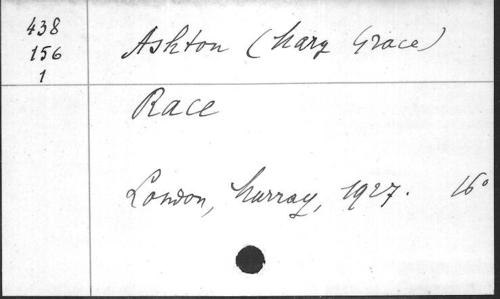 438
156
1
Ashton (Mary Grace)
Race
London, Murray, 1927. 16°